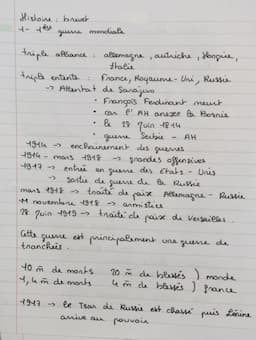 Histoire : brevet
1- 1ère guerre mondiale
triple alliance : allemagne, autriche, Hongrie,
Italie
triple entente : France, Royaume-Uni, Russie
-> Attentat de Sarajevo
• François Ferdinant meurt
• car l'AH anexe la Bosnie
• le 28 juin 1914
• guerre Serbie - AH
1914 -> enchainement des guerres
1914 - mars 1918 -> grandes offensives
1917 -> entrée en guerre des Etats-Unis
-> sortie de guerre de la Russie
mars 1918 -> traité de paix Allemagne - Russie
11 novembre 1918 -> armistice
28 juin 1919 -> traité de paix de Versailles.
Cette guerre est principalement une guerre de
tranchées.
10 m de morts 20 m de blessés ) monde
1,4 m de morts 4 m de blessés ) france
1917 -> le Tsar de Russie est chassé puis Lénine
arrive au pouvoir